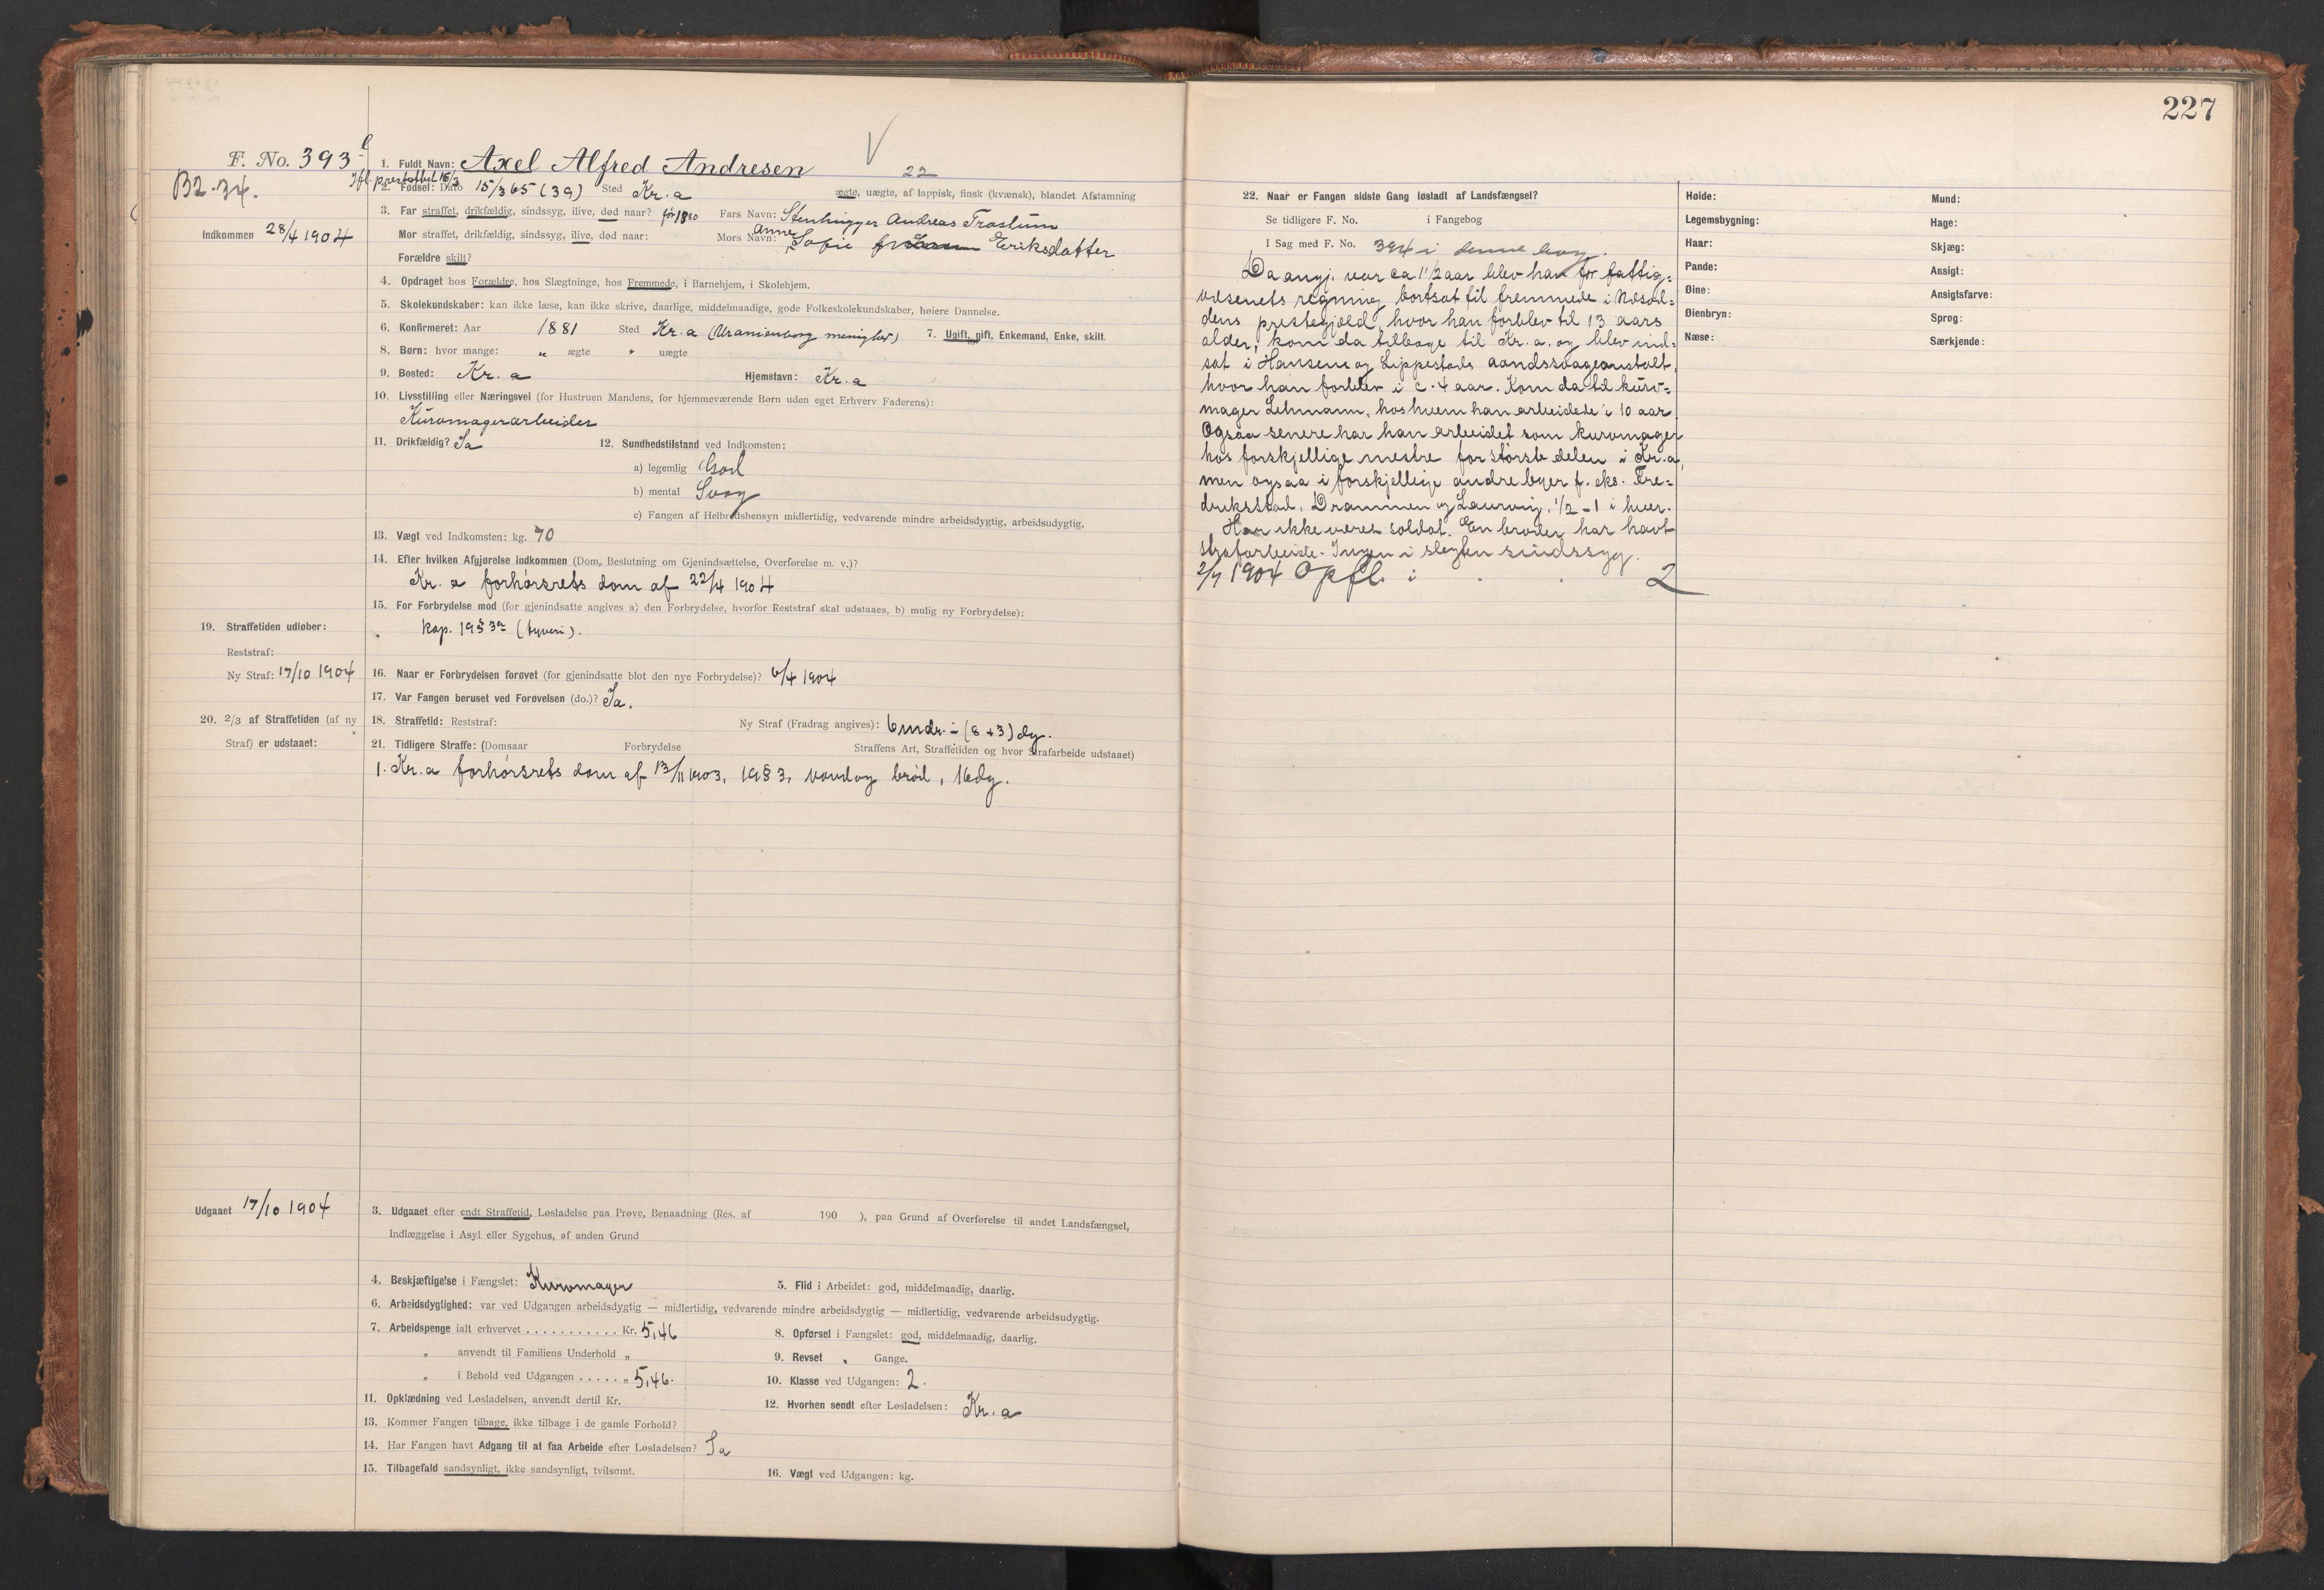 227
F. No. 393
B2. 34.
1. Fuldt Navn: Axel Alfred Andresen
22
Ifl. prestattest 15/3
2. Fødsel: Dato 15/3 65 (39) Sted Kr.a
ægte, uægte, af lappisk, finsk (kvænsk), blandet Afstamning
Indkommen 28/4 1904
3. Far straffet, drikfældig, sindssyg, ilive, død naar? før 1880 Fars Navn: Stenhugger Andreas Trostum
Mor straffet, drikfældig, sindssyg, ilive, død naar: Mors Navn: Anne Sofie Eriksdatter
Forældre skilt?
4. Opdraget hos Forældre, hos Slægtninge, hos Fremmede, i Barnehjem, i Skolehjem.
5. Skolekundskaber: kan ikke læse, kan ikke skrive, daarlige, middelmaadige, gode Folkeskolekundskaber, høiere Dannelse.
6. Konfirmeret: Aar 1881 Sted Kr.a (Uranienborg menighet) 7. Ugift, gift, Enkemand, Enke, skilt.
8. Børn: hvor mange: " ægte " uægte
9. Bosted: Kr.a Hjemstavn: Kr.a
10. Livsstilling eller Næringsvei (for Hustruen Mandens, for hjemmeværende Børn uden eget Erhverv Faderens):
Kurvmagerarbeider
11. Drikfældig? Ja 12. Sundhedstilstand ved Indkomsten:
a) legemlig God
b) mental Svag
c) Fangen af Helbredshensyn midlertidig, vedvarende mindre arbeidsdygtig, arbeidsudygtig.
13. Vægt ved Indkomsten: kg. 70
14. Efter hvilken Afgjørelse indkommen (Dom, Beslutning om Gjenindsættelse, Overførelse m. v.)?
Kr.a forhørsrets dom af 22/4 1904
15. For Forbrydelse mod (for gjenindsatte angives a) den Forbrydelse, hvorfor Reststraf skal udstaaes, b) mulig ny Forbrydelse):
kap. 19 § 3a (tyveri).
19. Straffetiden udløber:
Reststraf:
Ny Straf: 17/10 1904
16. Naar er Forbrydelsen forøvet (for gjenindsatte blot den nye Forbrydelse)? 6/4 1904
17. Var Fangen beruset ved Forøvelsen (do.)? Ja.
20. 2/3 af Straffetiden (af ny
Straf) er udstaaet:
18. Straffetid: Reststraf: Ny Straf (Fradrag angives): 6 mdr. ÷ (8 + 3) dg.
21. Tidligere Straffe: (Domsaar Forbrydelse Straffens Art, Straffetiden og hvor Strafarbeide udstaaet)
1. Kr.a forhørsrets dom af 13/11 1903, 19 § 3, vand og brød, 16 dg.
Udgaaet 17/10 1904
3. Udgaaet efter endt Straffetid, Løsladelse paa Prøve, Benaadning (Res. af 190 ), paa Grund af Overførelse til andet Landsfængsel,
Indlæggelse i Asyl eller Sygehus, af anden Grund
4. Beskjæftigelse i Fængslet: Kurvmager 5. Flid i Arbeidet: god, middelmaadig, daarlig.
6. Arbeidsdygtighed: var ved Udgangen arbeidsdygtig — midlertidig, vedvarende mindre arbeidsdygtig — midlertidig, vedvarende arbeidsudygtig.
7. Arbeidspenge ialt erhvervet . . . . . . . . . . . Kr. 5,46 8. Opførsel i Fængslet: god, middelmaadig, daarlig.
" anvendt til Familiens Underhold " 9. Revset " Gange.
" i Behold ved Udgangen . . . . . " 5,46. 10. Klasse ved Udgangen: 2.
11. Opklædning ved Løsladelsen, anvendt dertil Kr. 12. Hvorhen sendt efter Løsladelsen: Kr.a
13. Kommer Fangen tilbage, ikke tilbage i de gamle Forhold?
14. Har Fangen havt Adgang til at faa Arbeide efter Løsladelsen? Ja
15. Tilbagefald sandsynligt, ikke sandsynligt, tvilsomt. 16. Vægt ved Udgangen: kg.
22. Naar er Fangen sidste Gang løsladt af Landsfængsel?
Se tidligere F. No. i Fangebog
I Sag med F. No. 394 i denne bog.
Da angj. var ca 1 1/2 aar blev han for fattig-
væsenets regning bortsat til fremmede i Nesod-
dens prestegjæld, hvor han forblev til 13 aars
alder, kom da tilbage til Kr.a. og blev ind-
sat i Hansens og Lippestads aandssvageanstalt,
hvor han forblev i c. 4 aar. Kom da til kurv-
mager Lehmann, hos hvem han arbeidede i 10 aar.
Ogsaa senere har han arbeidet som kurvmager
hos forskjellige mestre for største delen i Kr.a,
men ogsaa i forskjellige andre byer f. eks. Fre-
drikstad, Drammen og Laurvig, 1/2 - 1 i hver.
Har ikke været soldat. En broder har havt
strafarbeide. Ingen i slegten sindssyg.
2/7 1904 Opfl. i . . 2
Høide:
Legemsbygning:
Haar:
Pande:
Øine:
Øienbryn:
Næse:
Mund:
Hage:
Skjæg:
Ansigt:
Ansigtsfarve:
Sprog:
Særkjende: